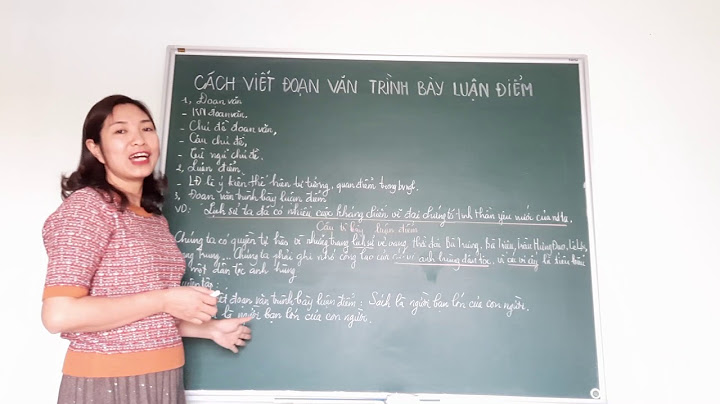 CÁCH VIẾT ĐOẠN VĂN TRÌNH BÀY LUẬN ĐIỂM
1, Đoạn văn
- KN đoạn văn.
- Chủ đề đoạn văn,
- Câu chủ đề,
- Từ ngữ chủ đề.
2, Luận điểm.
- LĐ là ý kiến thể hiện tư tưởng, quan điểm trong bvnl.
3, Đoạn văn trình bày luận điểm
VD: Lịch sử ta đã có nhiều cuộc kháng chiến vĩ đại chứng tỏ tinh thần yêu nước của ndta.
Câu luận điểm
Chúng ta có quyền tự hào vì những trang lịch sử vẻ vang thời đại Bà Trưng, Bà Triệu, Trần Hưng Đạo, Lê Lợi,
Trung... Chúng ta phải ghi nhớ công lao của các vị anh hùng dân tộc, vì các vị ấy là tiêu biểu
một dân tộc anh hùng
đoạn văn trình bày luận điểm: Sách là người bạn lớn của con người.
là người bạn lớn của con người.